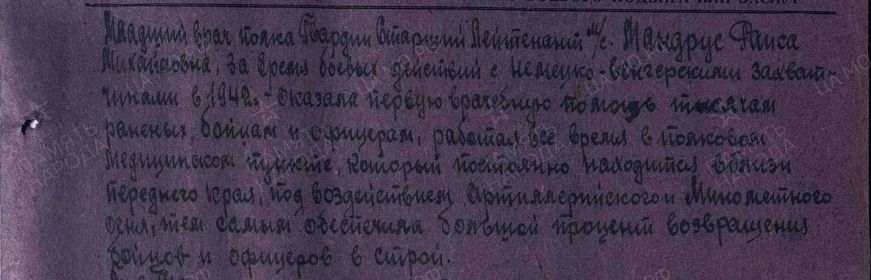 Младший врач полка Гвардии Старший Лейтенант м/с. Мандрус Раиса
Михайловна, за время боевых действий с немецко-венгерскими захват-
чиками в 1942г. оказала первую врачебную помощь тысячам
раненых бойцам и офицерам, работая всё время в полковом
медицинском пункте, который постоянно находится вблизи
переднего края, под воздействием Артиллерийского и Минометного
огня, тем самым обеспечила большой процент возвращения
бойцов и офицеров в строй.